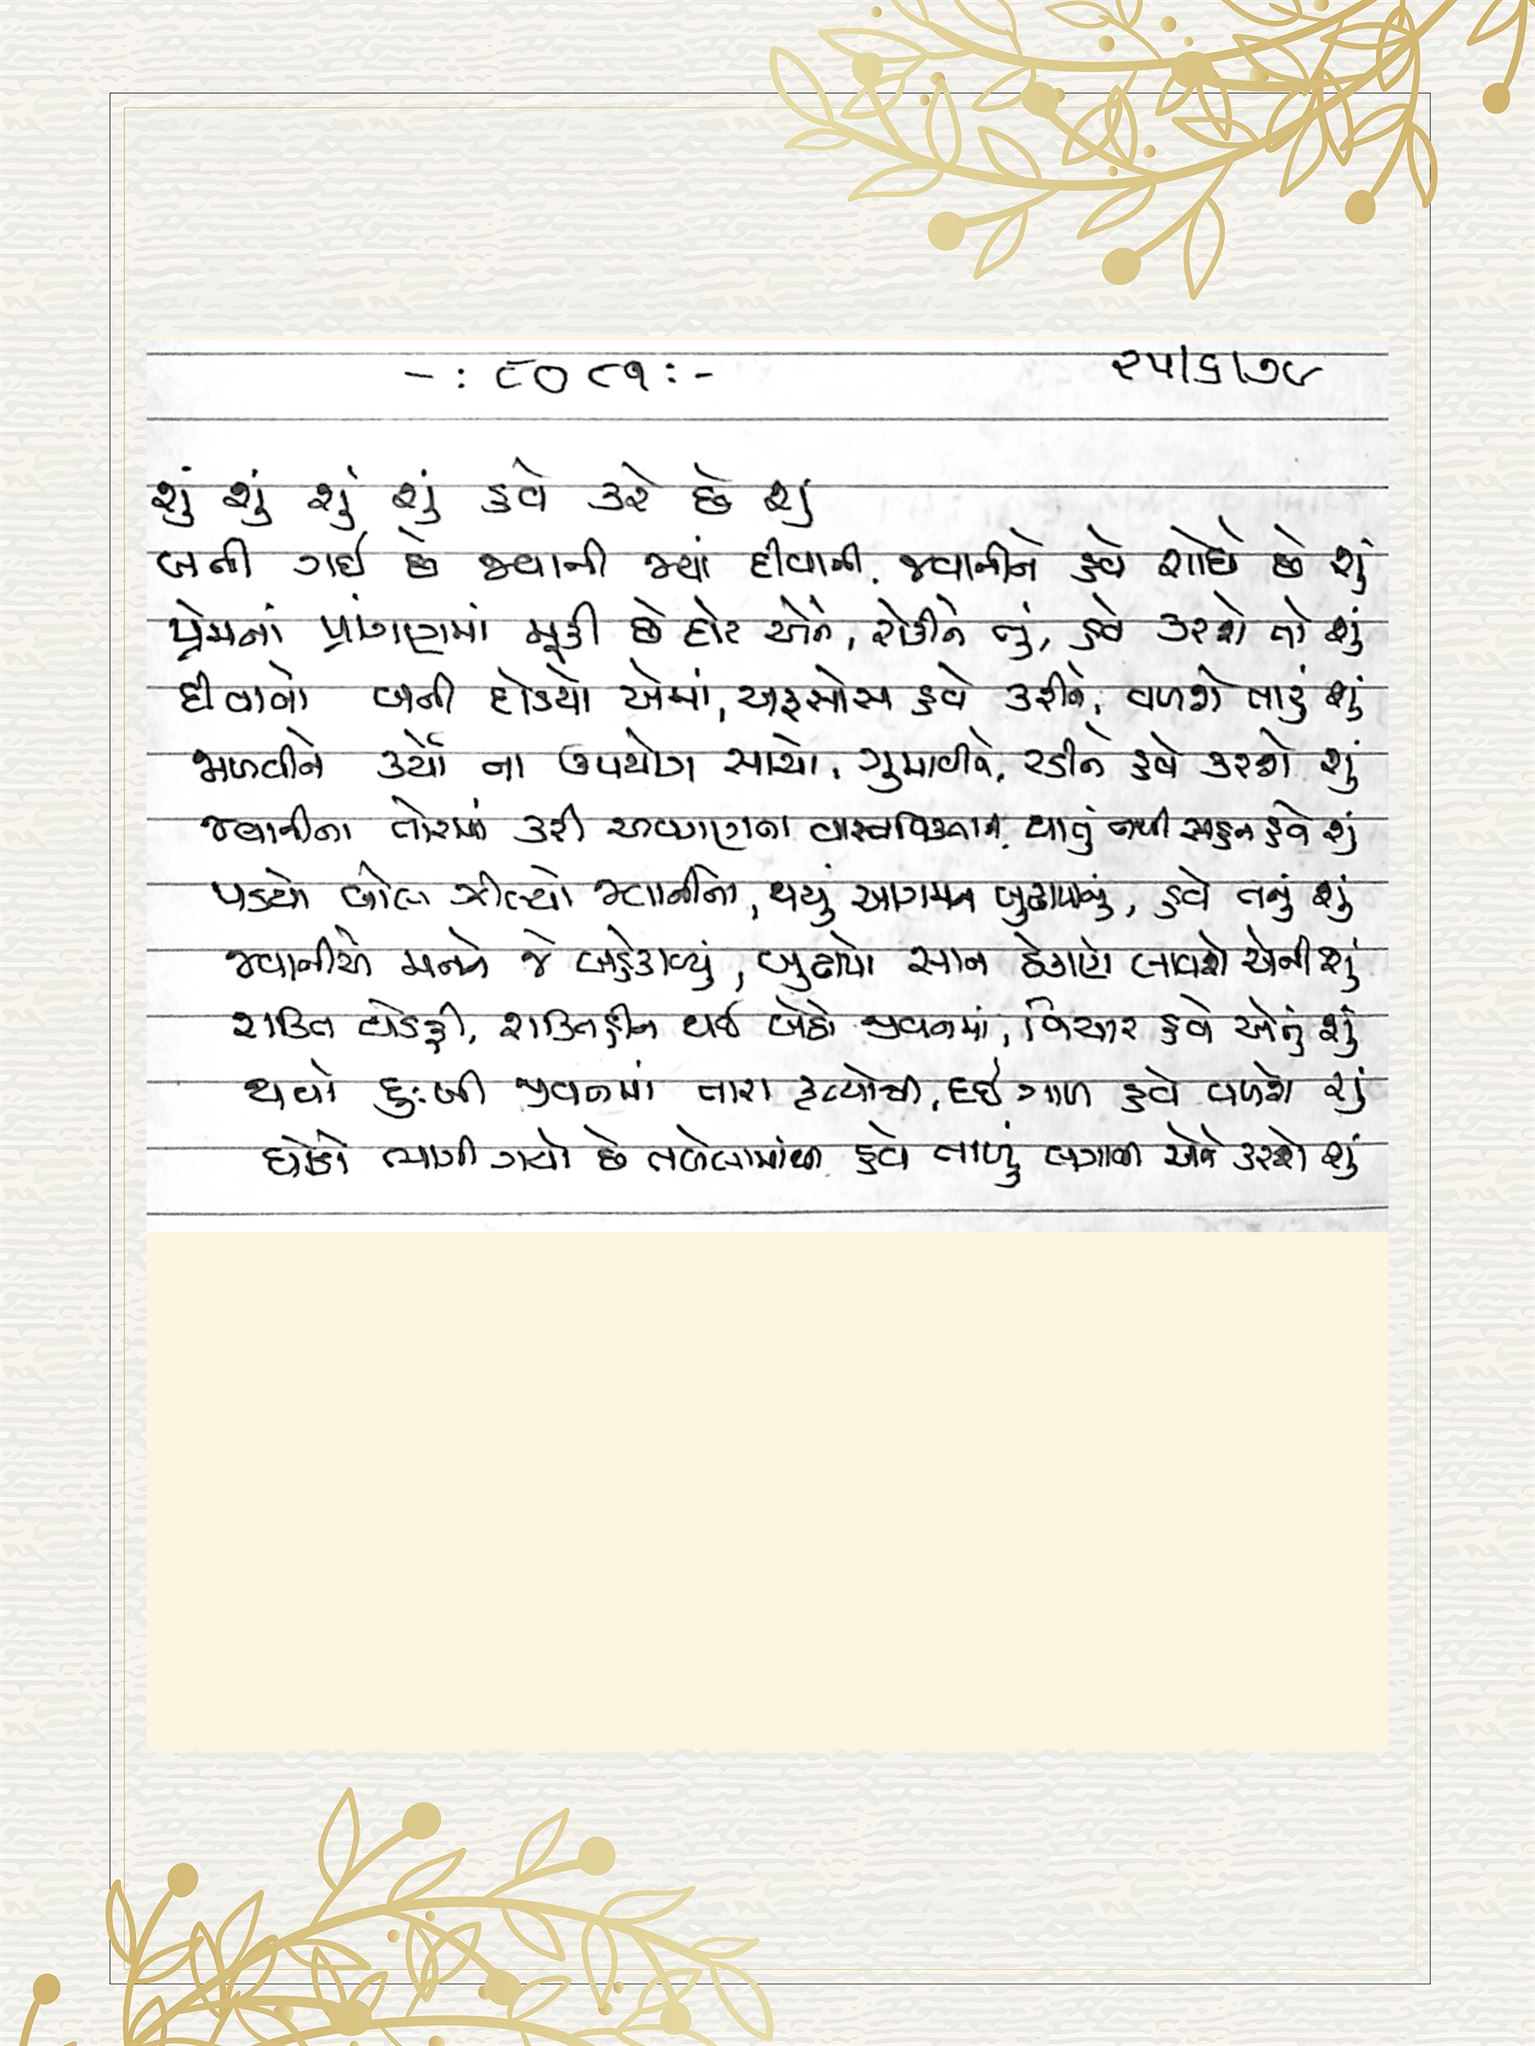 -: ૮૦૮૧ :-
૨૫/૬/૭૮
શું શું શું શું હવે કરે છે શું
બની ગઈ છે જ્વાની જ્યાં દીવાની, જ્વાનીને હવે શોધે છે શું
પ્રેમનાં પ્રાંગણમાં મૂકી છે દોટ એને, રોકીને તું, હવે કરશે તો શું
દીવાનો બની દોડયો એમાં, અફસોસ હવે કરીને, વળશે તારું શું
મળવીને કર્યો ના ઉપયોગ સાચો, ગુમાવીને, રડીને હવે કરશે શું
જ્વાનીના તોરમાં કરી અવગણના વાસ્તવિકતાની, થાતું નથી સહન હવે શું
પડયો બોલ ઝીલ્યો જ્વાનીનો, થયું આગમન બુઢાપાનું, હવે તનું શું
જ્વાનીએ મનને જે બહેકાવ્યું, બુઢાપો સાન ઠેકાણે લાવશે એની શું
શક્તિ વેડફી, શક્તિહીન થઈ બેઠો જીવનમાં, વિચાર હવે એનું શું
થયો દુઃખી જીવનમાં તારા કૃત્યોથી, દઈ ગાળ હવે વળશે શું
ઘોડો ભાગી ગયો છે તબેલામાંથી હવે તાળું લગાવી એને કરશે શું